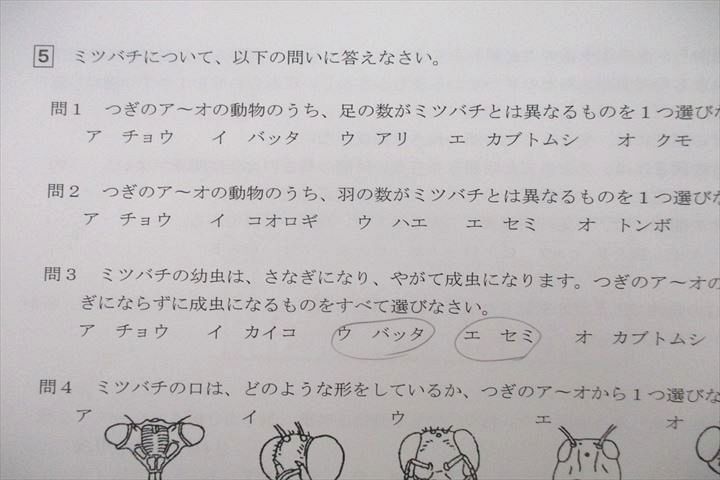 5 ミツバチについて、以下の問いに答えなさい。
問１ つぎのア～オの動物のうち、足の数がミツバチとは異なるものを１つ選びな
ア チョウ イ バッタ ウ アリ エ カブトムシ オ クモ
問２ つぎのア～オの動物のうち、羽の数がミツバチとは異なるものを１つ選びな
ア チョウ イ コオロギ ウ ハエ エ セミ オ トンボ
問３ ミツバチの幼虫は、さなぎになり、やがて成虫になります。つぎのア～オの
ぎにならずに成虫になるものをすべて選びなさい。
ア チョウ イ カイコ ウ バッタ エ セミ オ カブトムシ
問４ ミツバチの口は、どのような形をしているか、つぎのア～オから１つ選びな
ア イ ウ エ オ